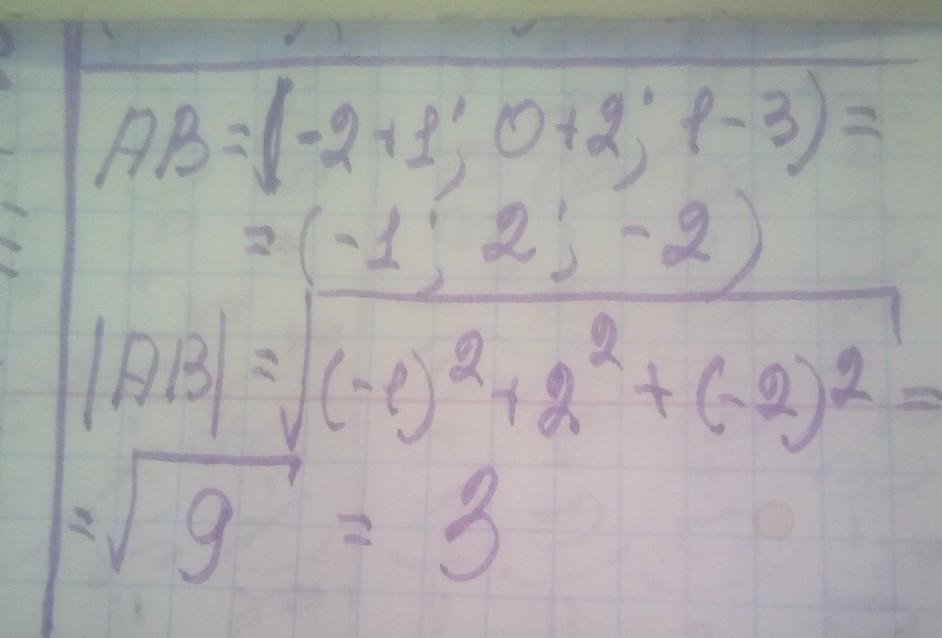 AB = (-2+1; 0+2; 1-3) =
= (-1; 2; -2)
|AB| = √((-1)² + 2² + (-2)²) =
= √9 = 3